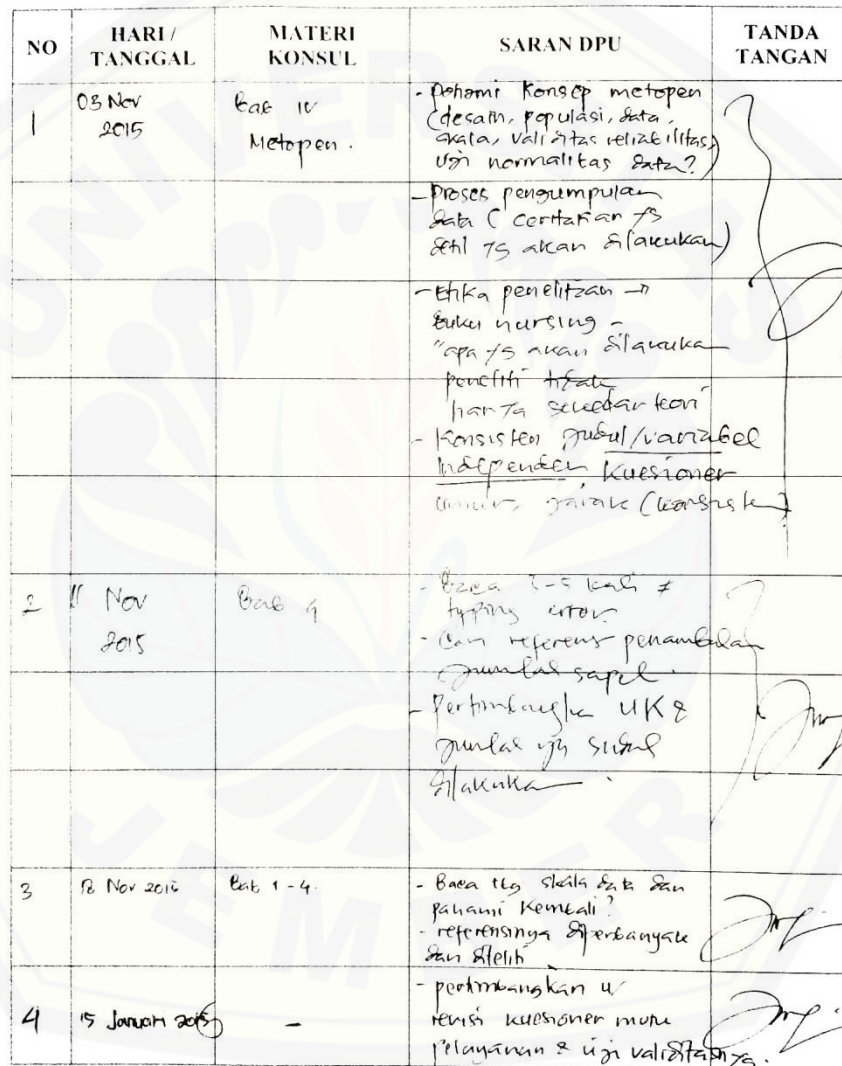 NO
HARI /
TANGGAL
MATERI
KONSUL
SARAN DPU
TANDA
TANGAN
1
03 Nov
2015
Bab IV
Metopen.
- pahami konsep metopen
(desain, populasi, data,
skala, validitas reliabilitas,
uji normalitas data?)
- Proses pengumpulan
data (ceritakan yg
detil yg akan dilakukan)
- Etika penelitian →
buku nursing -
"apa yg akan dilakuka
peneliti tidak
hanya sekedar teori
- Konsisten judul/variabel
Independen kuesioner
umur, jarak (konsisten)
2
11 Nov
2015
Bab 4
- Baca 3-5 kali ≠
typing error
- Cari referensi penambahan
jumlah sapel.
- Pertimbangka UK &
jumlah yg sudah
dilakuka.
3
18 Nov 2015
Bab 1-4.
- Baca ttg skala data dan
pahami kembali?
- referensinya diperbanyak
dan diteliti
4
15 Januari 2015
-
- pertimbangkan u/
revisi kuesioner mutu
pelayanan & uji validitasnya.
UNIVERSITAS
JEMBER